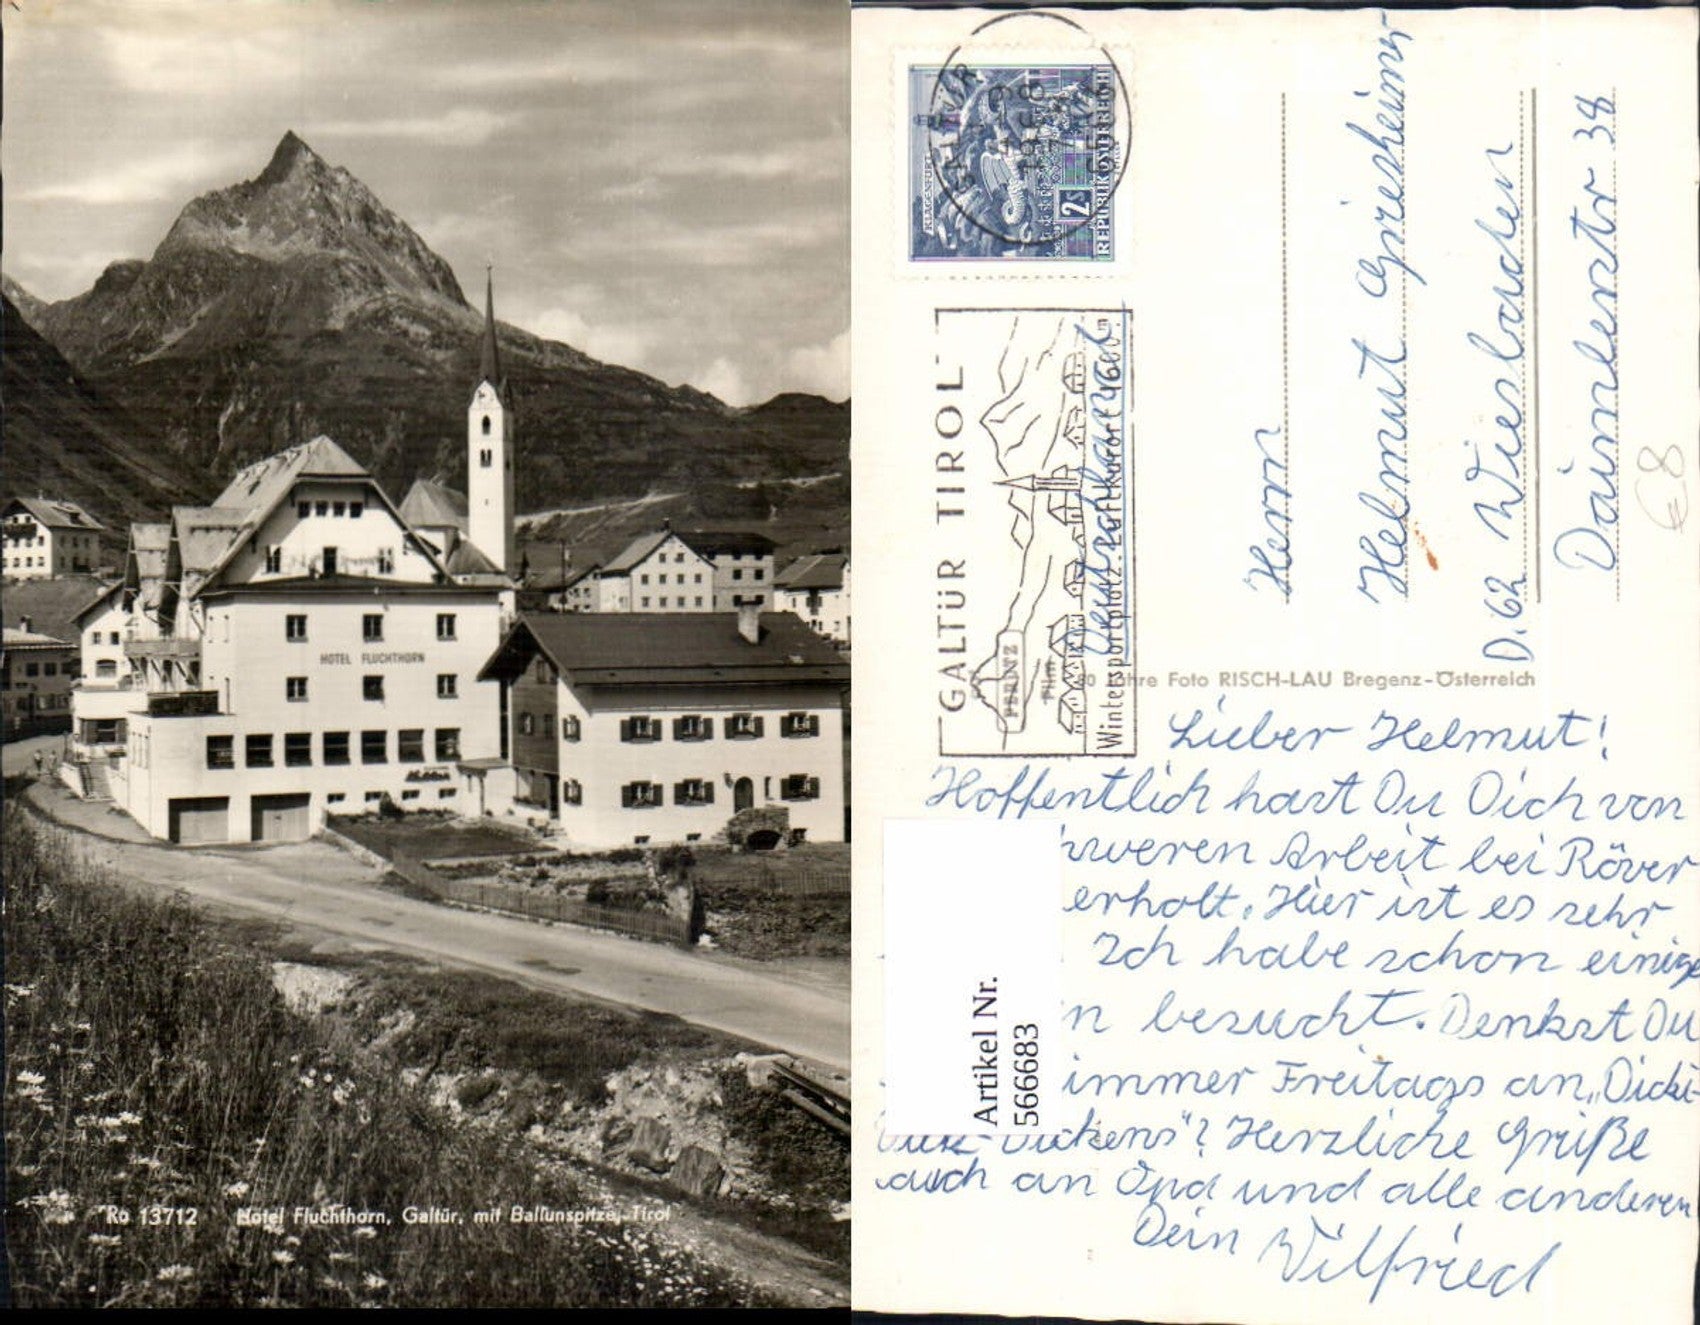 HOTEL FLUCHTHORN
Ro 13712 Hotel Fluchthorn, Galtür, mit Ballunspitze, Tirol
KLAGENFURT
2S
REPUBLIK ÖSTERREICH
GALTÜR TIROL
PRINZ
Film
Wintersportplatz-Luftkurort 1600 m
Deutschland
Herrn
Helmut Griesheimer
D. 62 Wiesbaden
Daimlerstr 38
€8
80 Jahre Foto RISCH-LAU Bregenz-Österreich
Lieber Helmut!
Hoffentlich hast Du Dich von
hweren Arbeit bei Röver
erholt. Hier ist es sehr
Ich habe schon einige
n besucht. Denkst Du
immer Freitags an „Dicki-
Dickens"? Herzliche Grüße
auch an Opa und alle anderen
Dein Wilfried
Artikel Nr.
566683